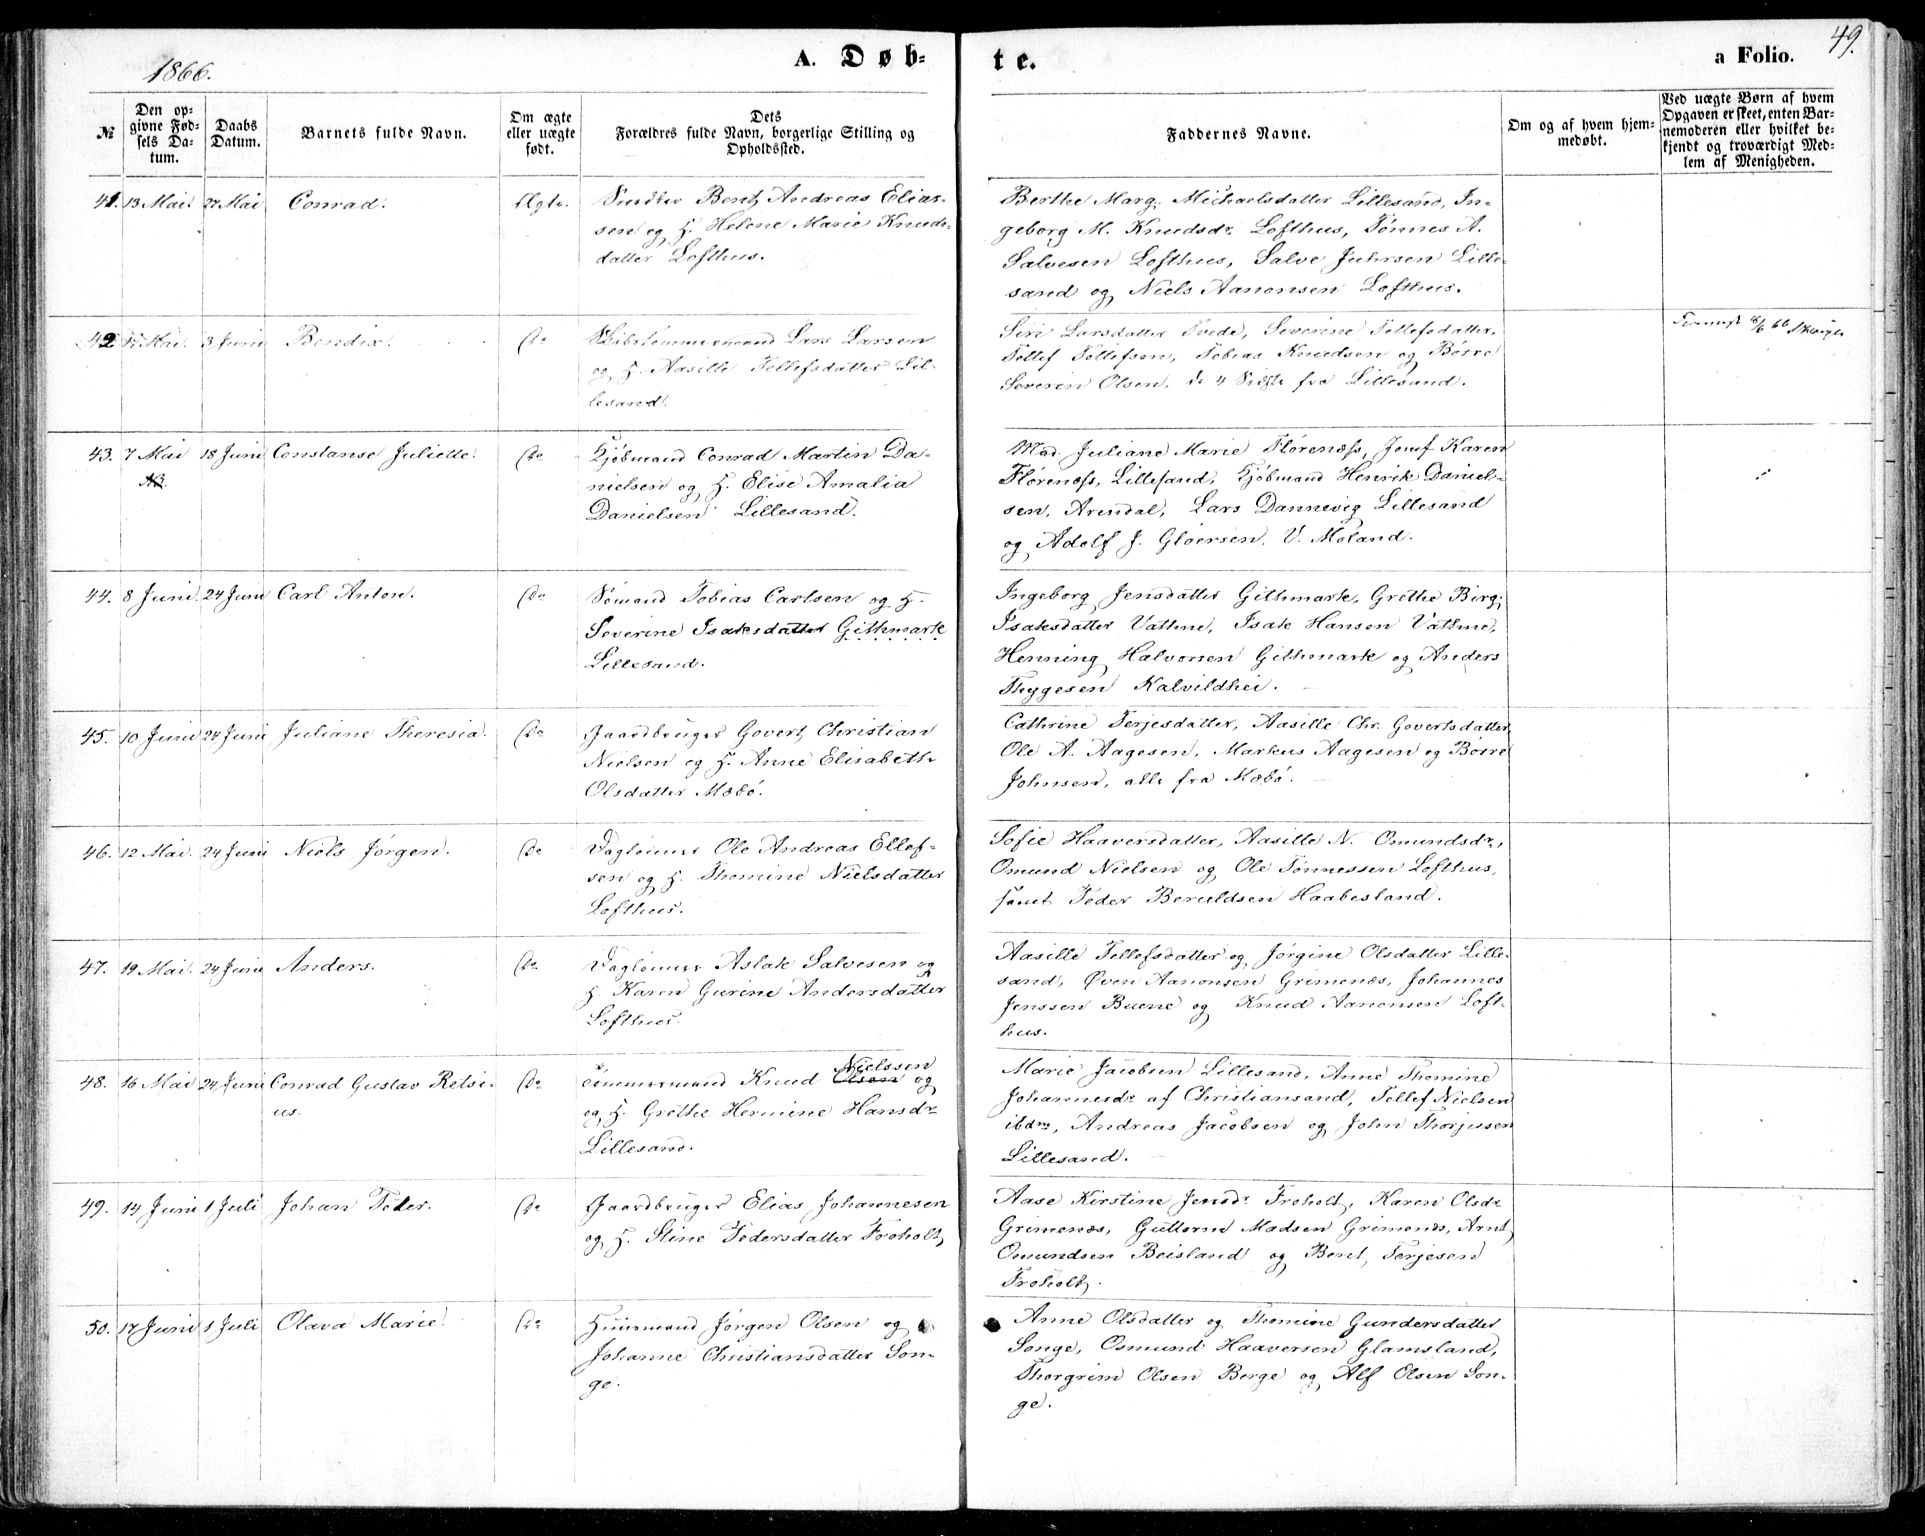 1866.
A. Døb-
te.
a Folio.
49.
№
Den op-
givne Fød-
sels Da-
tum.
Daabs
Datum.
Barnets fulde Navn.
Om ægte
eller uægte
født.
Dets
Forældres fulde Navn, borgerlige Stilling og
Opholdssted.
Faddernes Navne.
Om og af hvem hjem-
medøbt.
Ved uægte Børn af hvem
Opgaven er skeet, enten Bar-
nemoderen eller hvilket be-
kjendt og troværdigt Med-
lem af Menigheden.
41. 13 Mai. 27 Mai Conrad. Ægte.
Snedker Bent Andreas Elias-
sen og H. Helene Marie Knuds-
datter Lofthus.
Berthe Marg. Michaelsdatter Lillesand, In-
geborg M. Knudsdr Lofthus, Tønnes A.
Salvesen Lofthus, Salve Juhrsen Lille-
sand og Niels Aanonsen Lofthus.
42 Mai. 3 Juni Bendix. do
Skibstømmermand Lars Larsen
og H. Aasille Tellefsdatter Lil-
lesand.
Siri Larsdatter Tvede, Severine Tellefsdatter,
Tellef Tellefsen, Tobias Knudsen og Børre
Severin Olsen, de 4 Sidste fra Lillesand.
43. 7 Mai 18 Juni Constanse Juliette. do
NB.
Kjøbmand Conrad Martin Da-
nielsen og H. Elise Amalia
Danielsen Lillesand.
Mad. Juliane Marie Florenæss, Jomf Karen
Florenæss, Lillesand, Kjøbmand Henrik Daniel-
sen, Arendal, Lars Dannevig Lillesand
og Adolf J. Gløersen, V. Moland.
44. 8 Juni. 24 Juni Carl Anton. do
Sømand Tobias Carlsen og H.
Severine Isaksdatter Githmark
Lillesand.
Ingeborg Jensdatter Githmark, Grethe Birg.
Isaksdatter Vatne, Isak Hansen Vatne,
Henning Halvorsen Githmark og Anders
Thygesen Kalvildhei.
45. 10 Juni 24 Juni Juliane Theresia. do
Gaardbruger Govert Christian
Nielsen og H. Anne Elisabeth
Olsdatter Mæbø.
Cathrine Terjesdatter, Aasille Chr. Govertsdatter,
Ole A. Aagesen, Markus Aagesen og Børre
Johnsen, alle fra Mæbø.
46. 12 Mai. 24 Juni Niels Jørgen. do
Dagleiner Ole Andreas Ellef-
sen og H. Thomine Nielsdatter
Lofthus.
Sofie Haaversdatter, Aasille N. Omundsdr,
Omund Nielsen og Ole Tønnessen Lofthus,
samt Peder Beruldsen Haabesland.
47. 19 Mai. 24 Juni Anders. do
Dagleiner Aslak Salvesen og
H. Karen Gurine Andersdatter
Lofthus.
Aasille Tellefsdatter og Jørgine Olsdatter Lille-
sand, Øven Aanonsen Grimenæs, Johannes
Jenssen Buene og Knud Aanonsen Loft-
hus.
48. 16 Mai 24 Juni Conrad Gustav Retsi-
us. do
Nielssen
Tømmermand Knud Olsen og
og H. Grethe Hermine Hansdr
Lillesand.
Marie Jacobsen Lillesand, Anne Thomine
Johannesdr af Christiansand, Tellef Nielsen
ibdm, Andreas Jacobsen og John Thorjusen
Lillesand.
49. 14 Juni 1 Juli Johan Peder. do
Gaardbruger Elias Johannesen
og H. Stine Pedersdatter Froholt
Aase Kirstine Jensdr Froholt, Karen Olsdr
Grimenæs, Guttorm Madsen Grimenæs, Arnt
Omundsen Beisland og Bent Terjesen
Froholt.
50. 17 Juni 1 Juli Olava Marie. do
Huusmand Jørgen Olsen og
Johanne Christiansdatter Son-
ge.
Anne Olsdatter og Thomine Gundersdatter
Songe, Osmund Haaversen Glamsland,
Thorgrim Olsen Berge og Alf Olsen Son-
ge.